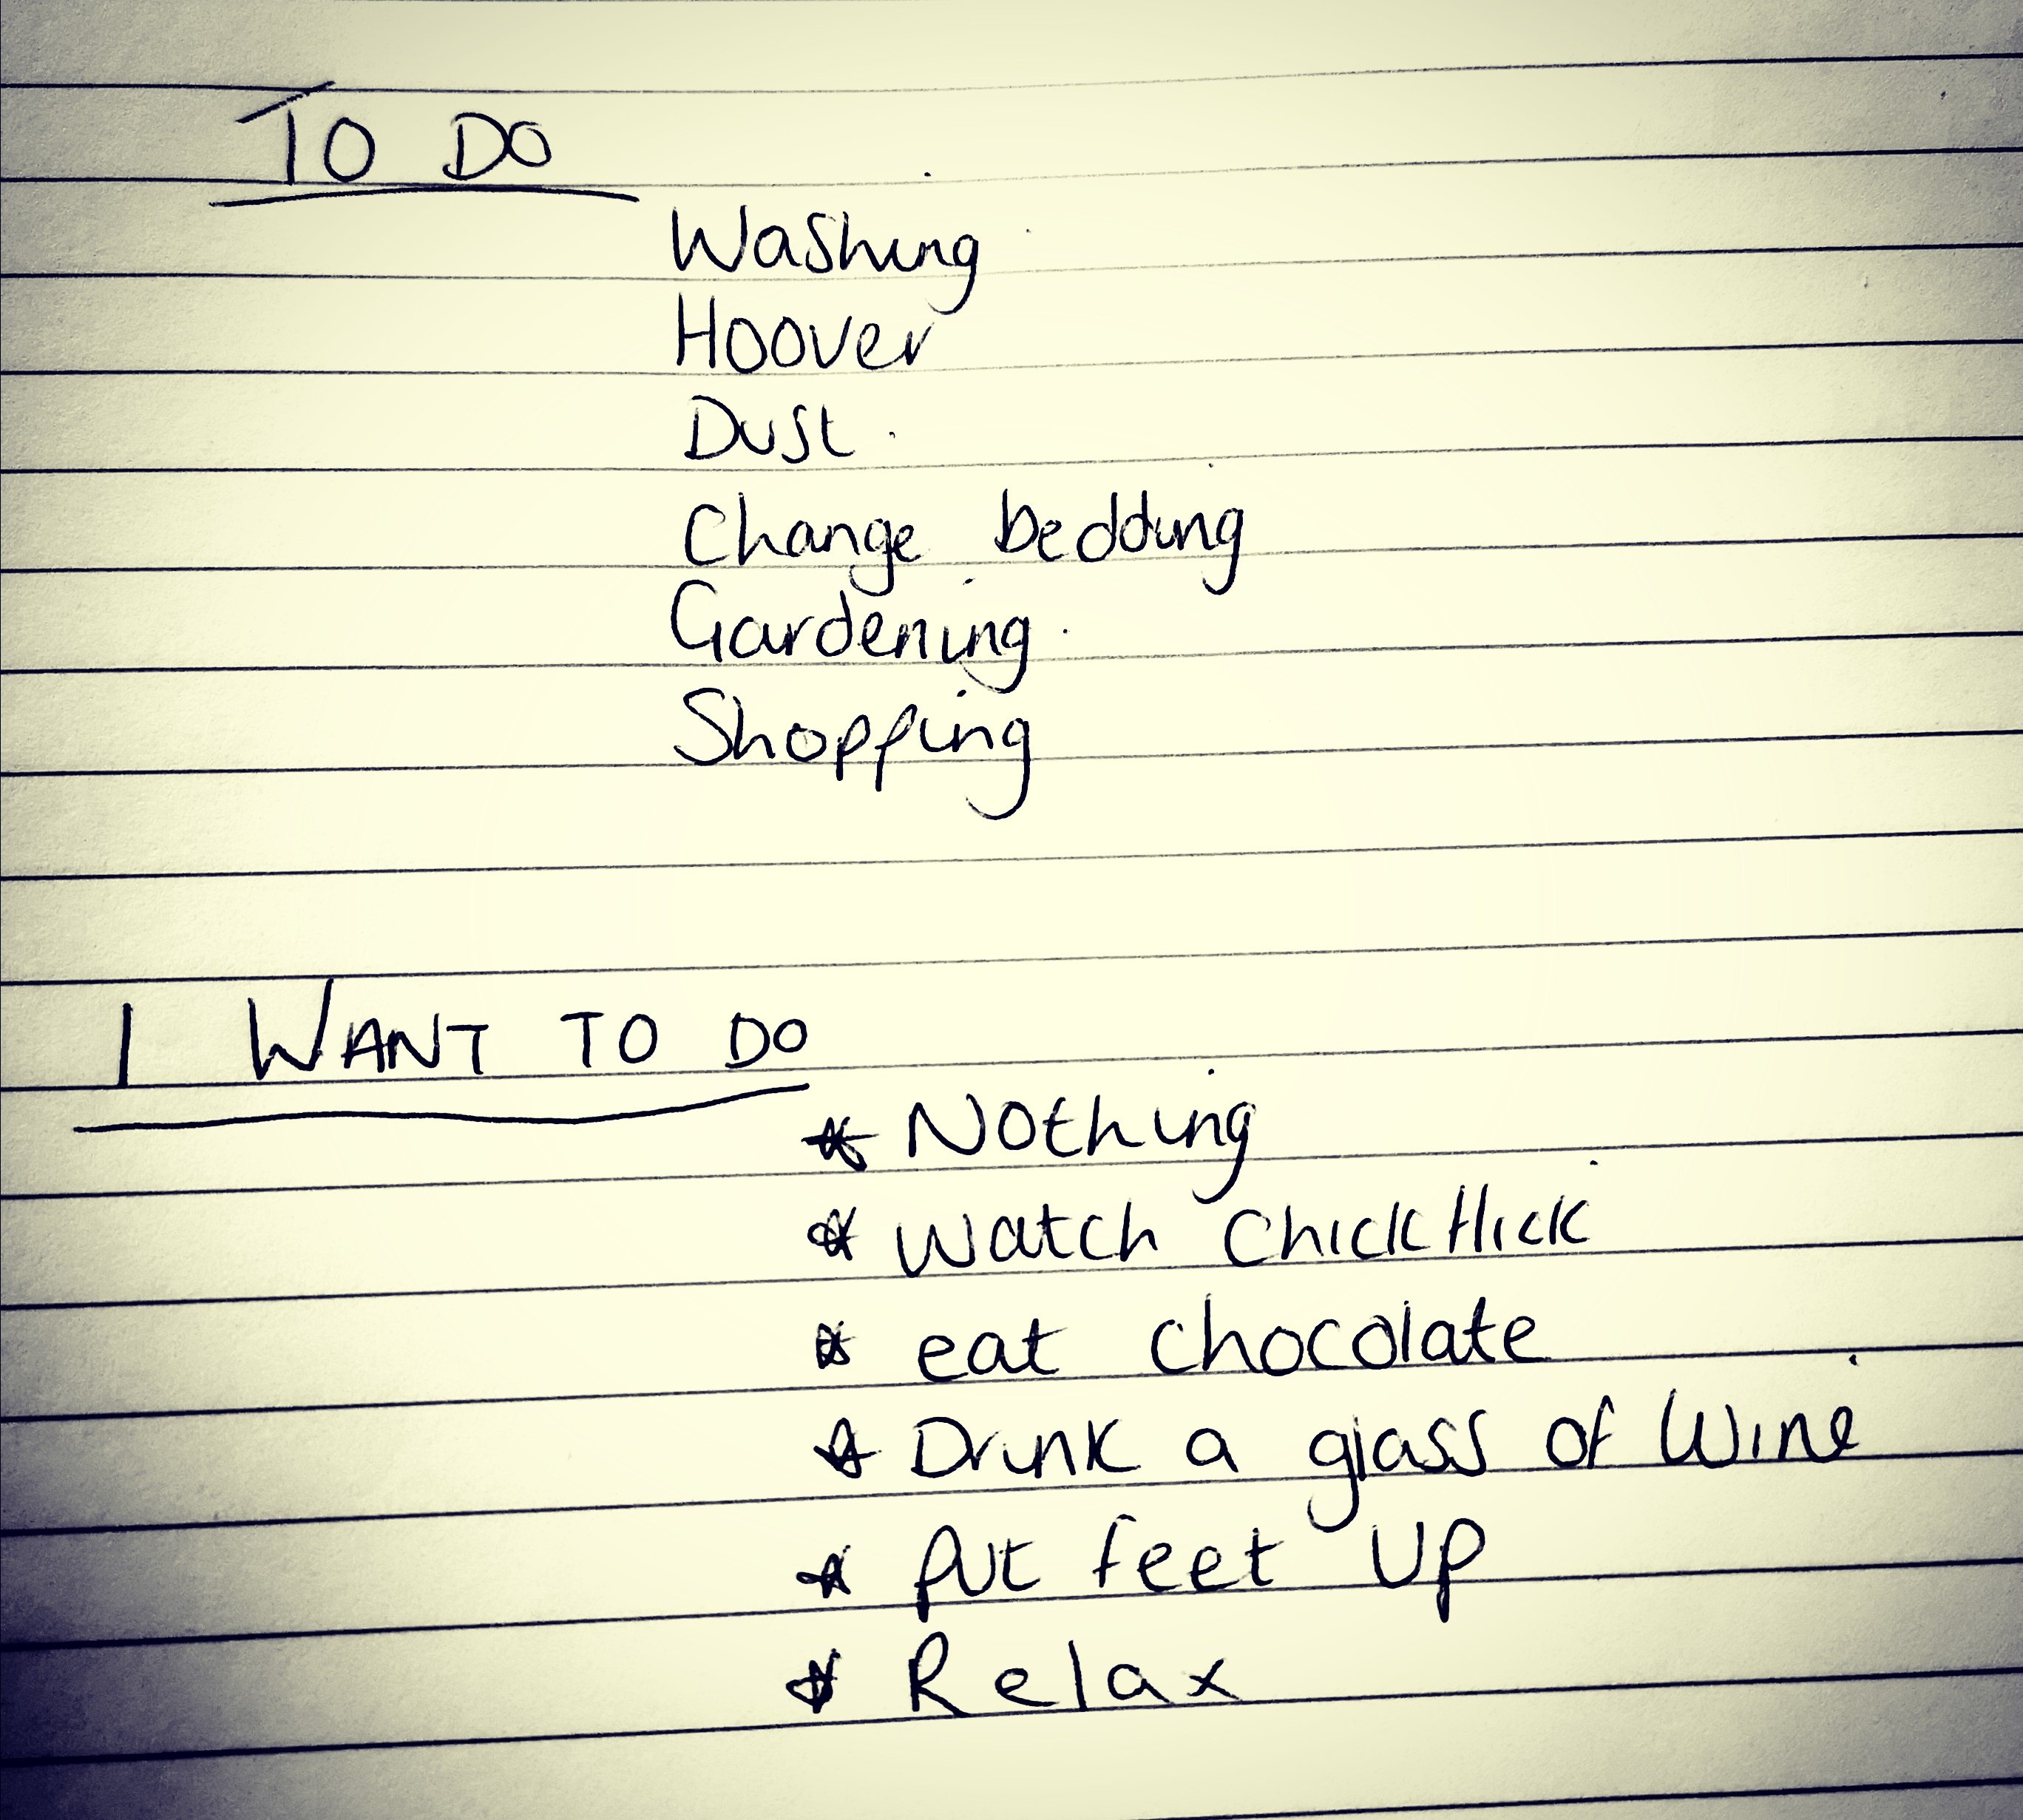 TO DO
Washing
Hoover
Dust
Change bedding
Gardening
Shopping
I WANT TO DO
* Nothing
* Watch Chick flick
* eat chocolate
* Drink a glass of Wine
* Put feet up
* Relax